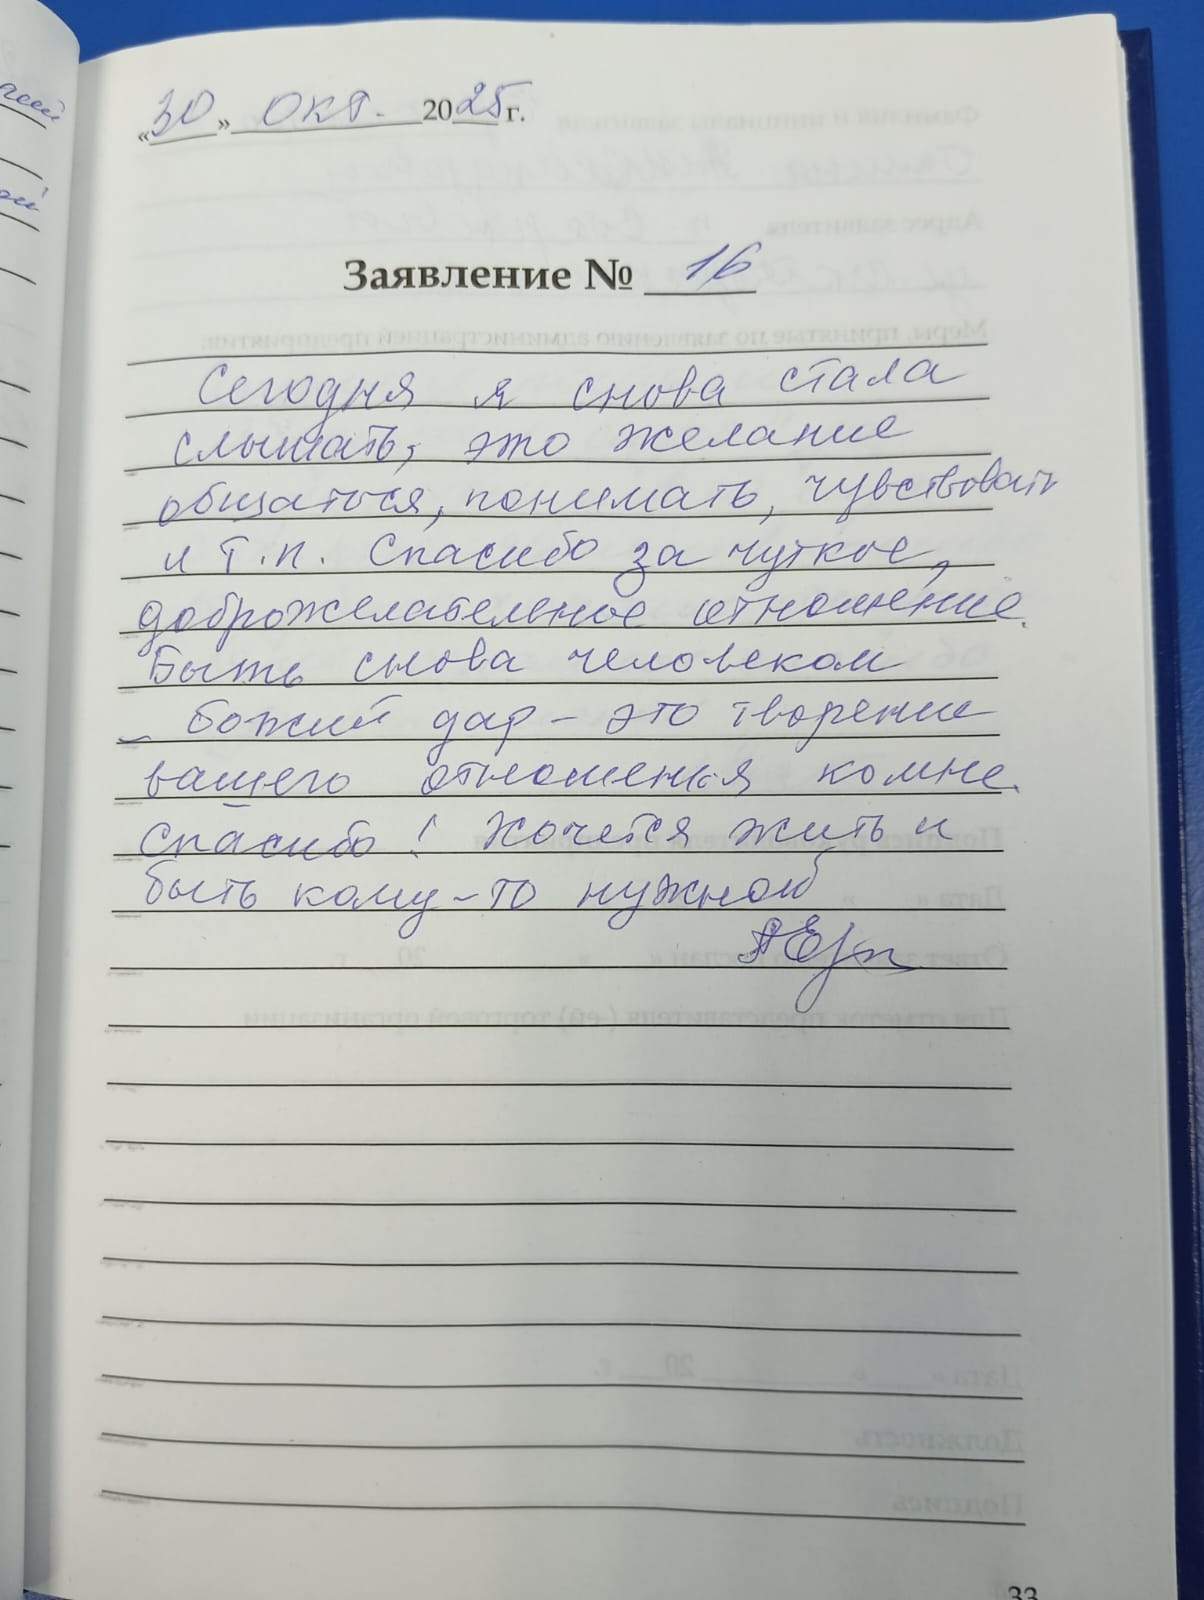 «30» окт. 2025 г.
Заявление № 16
Сегодня я снова стала
слышать, это желание
общаться, понимать, чувствовать
и т.п. Спасибо за чуткое,
доброжелательное отношение.
Быть снова человеком
– божий дар – это творение
вашего отношения ко мне.
Спасибо! Хочется жить и
быть кому-то нужной
33